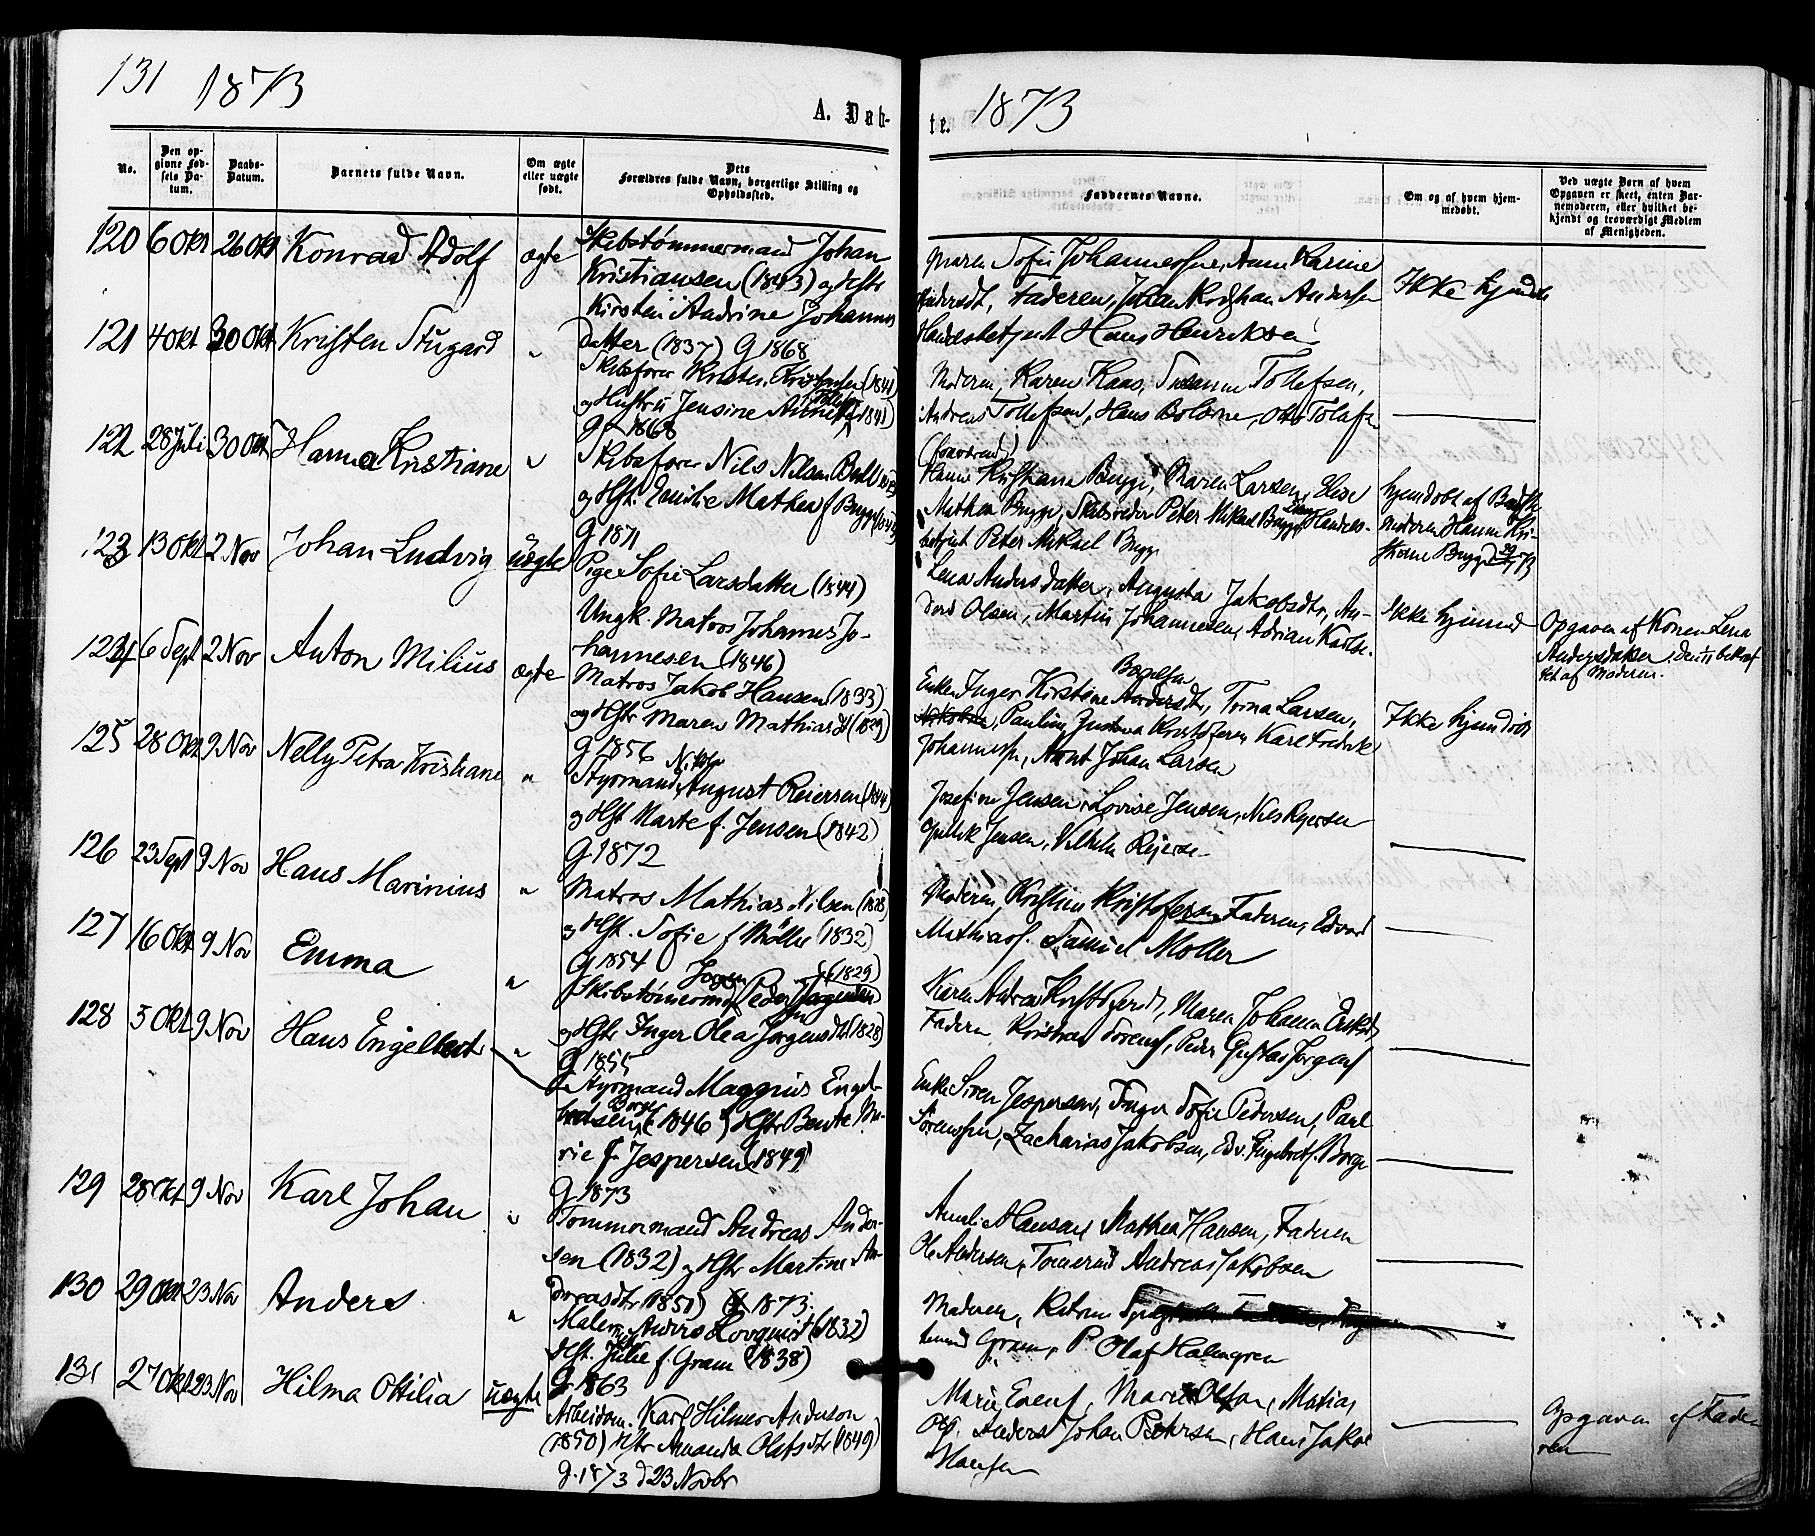 131 1873
A. Døb-
te. 1873
No.
Den op-
givne Fød-
sels Da-
tum.
Daabs-
Datum.
Barnets fulde Navn.
Om ægte
eller uægte
født.
Dets
Forældres fulde Navn, borgerlige Stilling og
Opholdssted.
Faddernes Navne.
Om og af hvem hjem-
medøbt.
Ved uægte Børn af hvem
Opgaven er skeet, enten Bar-
nemoderen, eller hvilket be-
kjendt og troværdigt Medlem
af Menigheden.
120 6 Okt 26 Okt Konrad Adolf ægte
Skibstømmermand Johan
Kristiansen (1843) og Hstr
Kirstin Andrine Johannes
Datter (1837) G 1868
Maren Sofie Anne Karine
Andersdt, Faderen, Andersen
Handelsbetjent Hans Henriksen
Ikke hjemdøbt
121 4 Okt 30 Okt Kristen Stugard "
Skibsfører (1841)
og Hustru Jensine (1841)
G 1868
Moderen, Karen Kaas, Susanne Tollefsen,
Andreas Tollefsen, Hans
122 28 Juli 30 Okt Hanna Kristiane "
Skibsfører Nils Nilsen
og Hst. Emilie Mathea f Bugge
G 1871
Hanne Kristiane Bugge, Maren Larsen, Elise
Mathea Bugge, Skibsreder Peter Mikael Bugge, Handels-
betjent Peter Mikael Bugge
hjemdøbt af
Hanne Kri-
stiane Bugge
123 13 Okt 2 Nov Johan Ludvig uægte
Pige Sofie Larsdatter (1844)
Ungk. Matros Johannes Jo-
hannesen (1846)
Lena Andersdatter, Augusta Jakobsdtr, An-
ders Olsen, Martin Johannesen, Adrian Karlse.
Ikke hjemmed
Opgaven af Konen Lena
Andersdatter den bekræf
tet af Moderen.
124 6 Sept 2 Nov Anton Milius ægte
Matros Jakob Hansen (1833)
og Hstr Maren Mathiasdt (1829)
G 1856
Enken Inger Kirstine Andersdt, Torna Larsen,
Pauline Gustava Kristofersen Karl Fredrik
Johannesen, Arnt Johan Larsen
Ikke hjemdøbt
125 28 Okt 9 Nov Nelly Petra Kristiane "
Styrmand August Reiersen (1844)
og Hst Marte f. Jensen (1842)
G 1872
Josefine Jensen, Lovise Jensen, Nils Rejersen
Jensen, Vilhelm Rejerse
126 23 Sept 9 Nov Hans Marinius "
Matros Mathias Nilsen (1828)
og Hst. Sofie f Møller (1832)
G 1854
Moderen, Kristine Kristofersen, Faderen, Edvard
Mathias. Samuel Moller
127 16 Okt 9 Nov Emma "
Skibstømmermd Peder Jørgensen (1829)
og Hstr Inger Olea Jørgensdt (1828)
G 1855
Karen Andrea Maren Johanne
Faderen Kristian Sørens, Peder Gustav Jørgens
128 5 Okt 9 Nov Hans Engelbert "
Styrmand Magnus Engel-
bretsen Borge (1846) Hstr Bente Ma-
rie f. Jespersen (1849)
G 1873
Enke Siren Jespersen, Inger Sofie Pedersen, Paul
Sørensen, Zacharias Jakobsen, Edv. Engebrets. Borge
129 28 Okt 9 Nov Karl Johan "
Tømmermand Andreas Ander-
sen (1832) og Hstr Martine An-
dreasdtr (1850) G 1873.
Amalie Hansen Mathea Hansen, Faderen
Ole Andersen, Andreas Jakobsen
130 29 Okt 23 Nov Anders "
Maler Anders Lovquist (1832)
Hst. Julie f. Gram (1838)
G. 1863
Moderen, Katrine
Gram, P. Olaf Halmgren
131 27 Okt 23 Nov Hilma Ottilia uægte
Arbeidsm. Karl Hilmer Anderson
(1850) Hstr Amanda Olafsdtr (1849)
G. 1873 d 23 Novbr
Marie Evens, Marie Olsen, Matias
Anders Johan Petersen, Hans Jakob
Hansen
Opgaven af Fade
ren